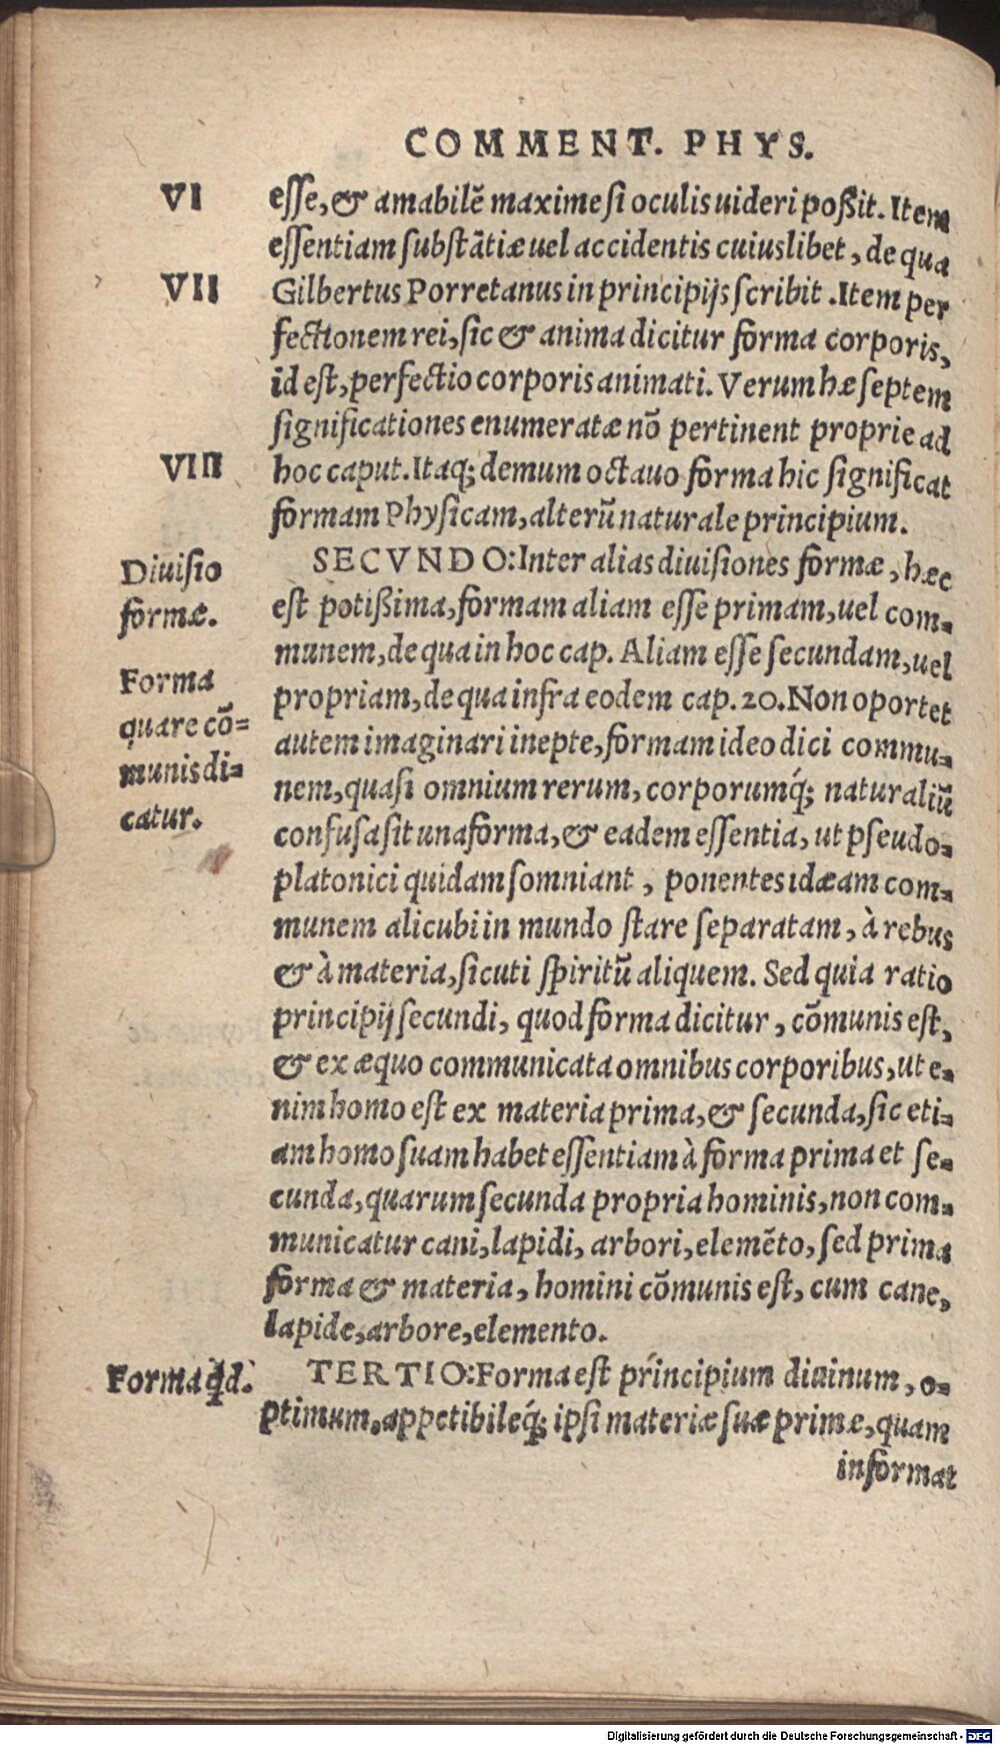 COMMENT. PHYS.
VI
esse, & amabilẽ maxime si oculis uideri poßit. Item
essentiam substãtiæ uel accidentis cuiuslibet, de qua
VII
Gilbertus Porretanus in principijs scribit. Item per
fectionem rei, sic & anima dicitur forma corporis,
id est, perfectio corporis animati. Verum hæ septem
significationes enumeratæ nõ pertinent proprie ad
VIII
hoc caput. Itaq; demum octauo forma hic significat
formam Physicam, alterũ naturale principium.
Diuisio
formæ.
SECVNDO: Inter alias diuisiones formæ, hæc
est potißima, formam aliam esse primam, uel com=
munem, de qua in hoc cap. Aliam esse secundam, uel
Forma
quare cõ=
munis di=
catur.
propriam, de qua infra eodem cap. 20. Non oportet
autem imaginari inepte, formam ideo dici commu=
nem, quasi omnium rerum, corporumq́; naturaliũ
confusa sit una forma, & eadem essentia, ut pseudo=
platonici quidam somniant, ponentes idæam com=
munem alicubi in mundo stare separatam, à rebus
& à materia, sicuti spiritũ aliquem. Sed quia ratio
principij secundi, quod forma dicitur, cõmunis est,
& ex æquo communicata omnibus corporibus, ut e=
nim homo est ex materia prima, & secunda, sic eti=
am homo suam habet essentiam à forma prima et se=
cunda, quarum secunda propria hominis, non com=
municatur cani, lapidi, arbori, elemẽto, sed prima
forma & materia, homini cõmunis est, cum cane,
lapide, arbore, elemento.
Forma qd.
TERTIO: Forma est principium diuinum, o=
ptimum, appetibileq́; ipsi materiæ suæ primæ, quam
informat
Digitalisierung gefördert durch die Deutsche Forschungsgemeinschaft - DFG